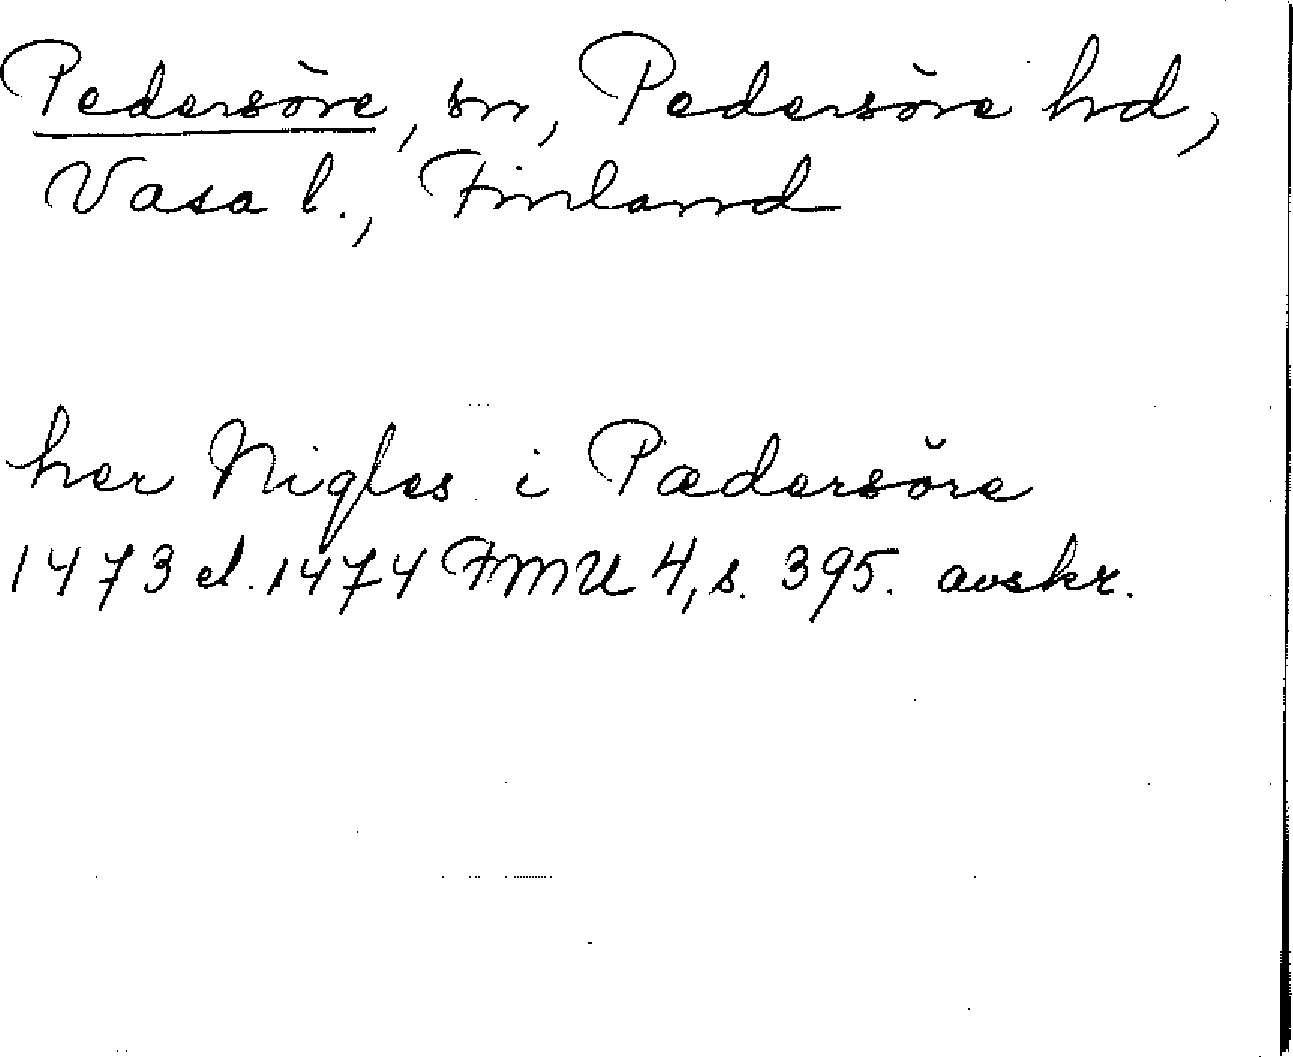 Pedersöre, sn, Pedersöre hd,
Vasa l., Finland
her Nigles i Pædersöre
1473 el. 1474 FMU 4, s. 395. avskr.